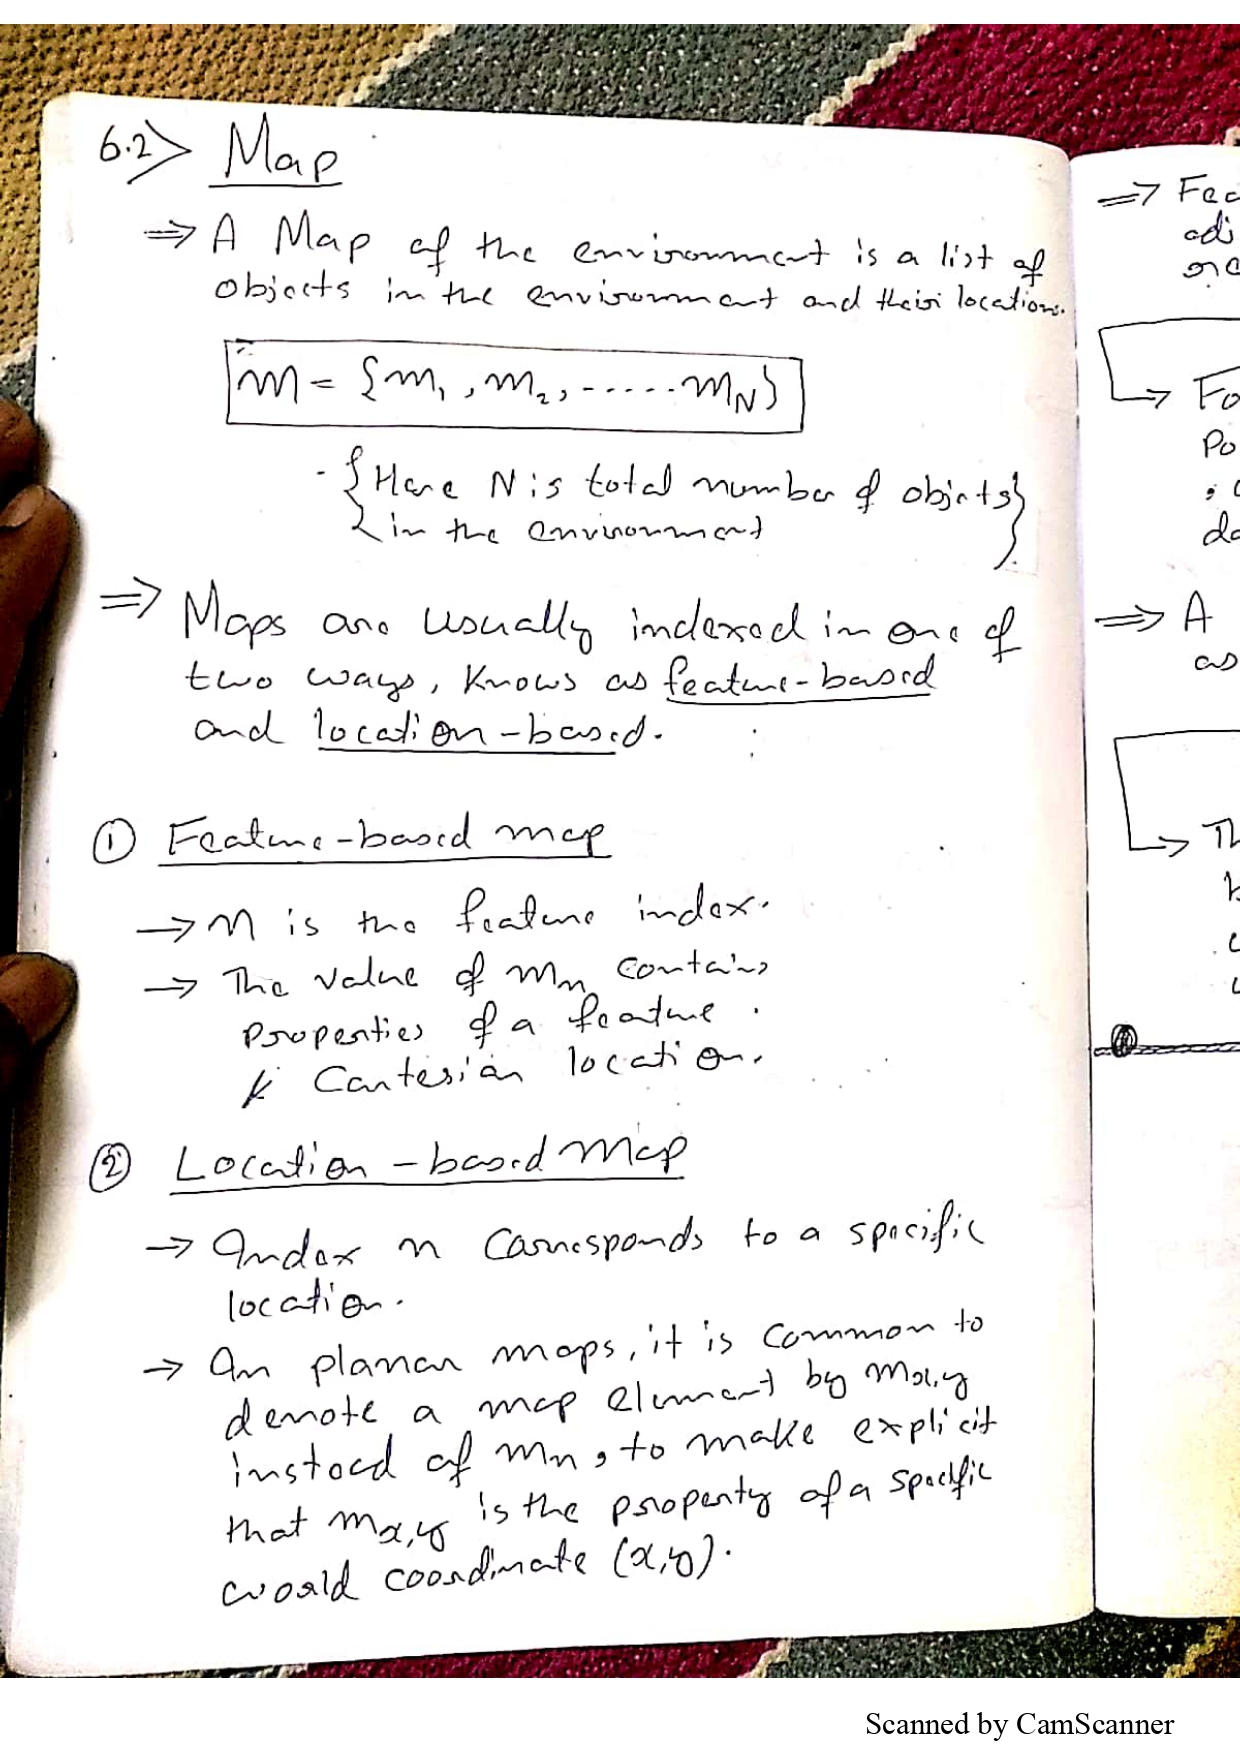 6.2> Map
⇒ A Map of the environment is a list of
objects in the environment and their location.
m = {m₁, m₂, ..... m_N}
- {Here N is total number of objects}
in the environment
⇒ Maps are usually indexed in one of
two ways, knows as feature-based
and location-based.
① Feature-based map
→ n is the feature index.
→ The value of mₙ contains
properties of a feature.
Cartesian location.
② Location-based Map
→ Index n corresponds to a specific
location.
→ In planar maps, it is common to
denote a map element by m_x,y
instead of mₙ, to make explicit
that m_x,y is the property of a specific
world coordinate (x,y).
⇒ Fea
adi
Fo
Po
da
⇒ A
as
Th
Scanned by CamScanner